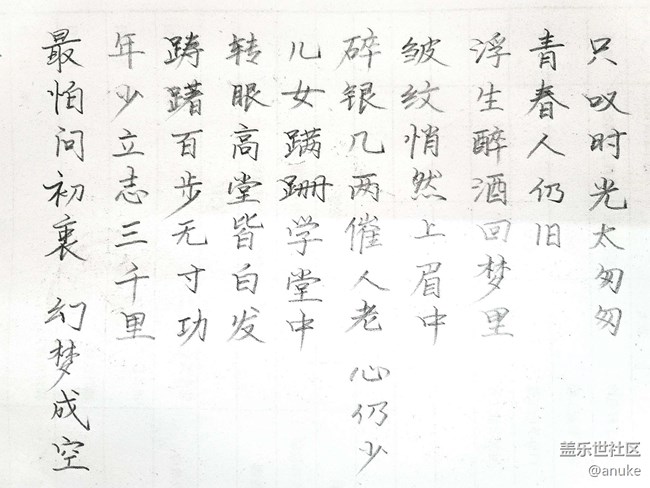 最怕问初衷 幻梦成空
年少立志三千里
踌躇百步无寸功
转眼高堂皆白发
儿女蹒跚学堂中
碎银几两催人老 心仍少
皱纹悄然上眉中
浮生醉酒回梦里
青春人仍旧
只叹时光太匆匆
盖乐世社区
@anuke